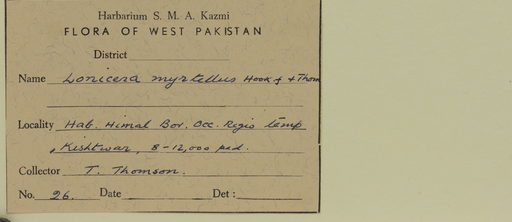 Harbarium S. M. A. Kazmi
FLORA OF WEST PAKISTAN
District
Name Lonicera myrtellus Hook f & Thom
Locality Hab. Himal Bor. Occ. Regio temp
, Kishtwar, 8-12,000 ped.
Collector T. Thomson.
No. 26. Date Det :